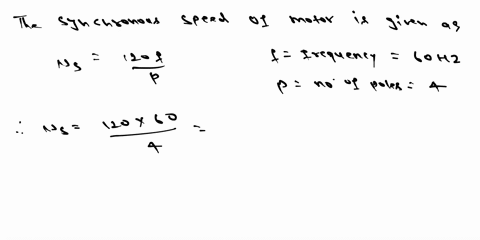 The synchronous speed of motor is given as
Ns = 120f / P f = frequency = 60Hz
P = no. of poles = 4
∴ Ns = 120 × 60 / 4 =